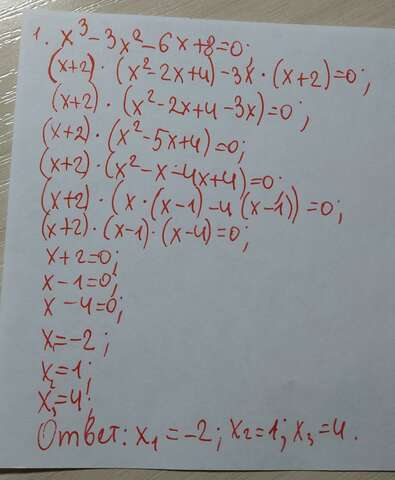 1. x³-3x²-6x+8=0;
(x+2)·(x²-2x+4)-3x·(x+2)=0;
(x+2)·(x²-2x+4-3x)=0;
(x+2)·(x²-5x+4)=0;
(x+2)·(x²-x-4x+4)=0;
(x+2)·(x·(x-1)-4(x-1))=0;
(x+2)·(x-1)·(x-4)=0;
x+2=0;
x-1=0;
x-4=0;
x₁=-2;
x₂=1;
x₃=4;
Ответ: x₁=-2; x₂=1; x₃=4.